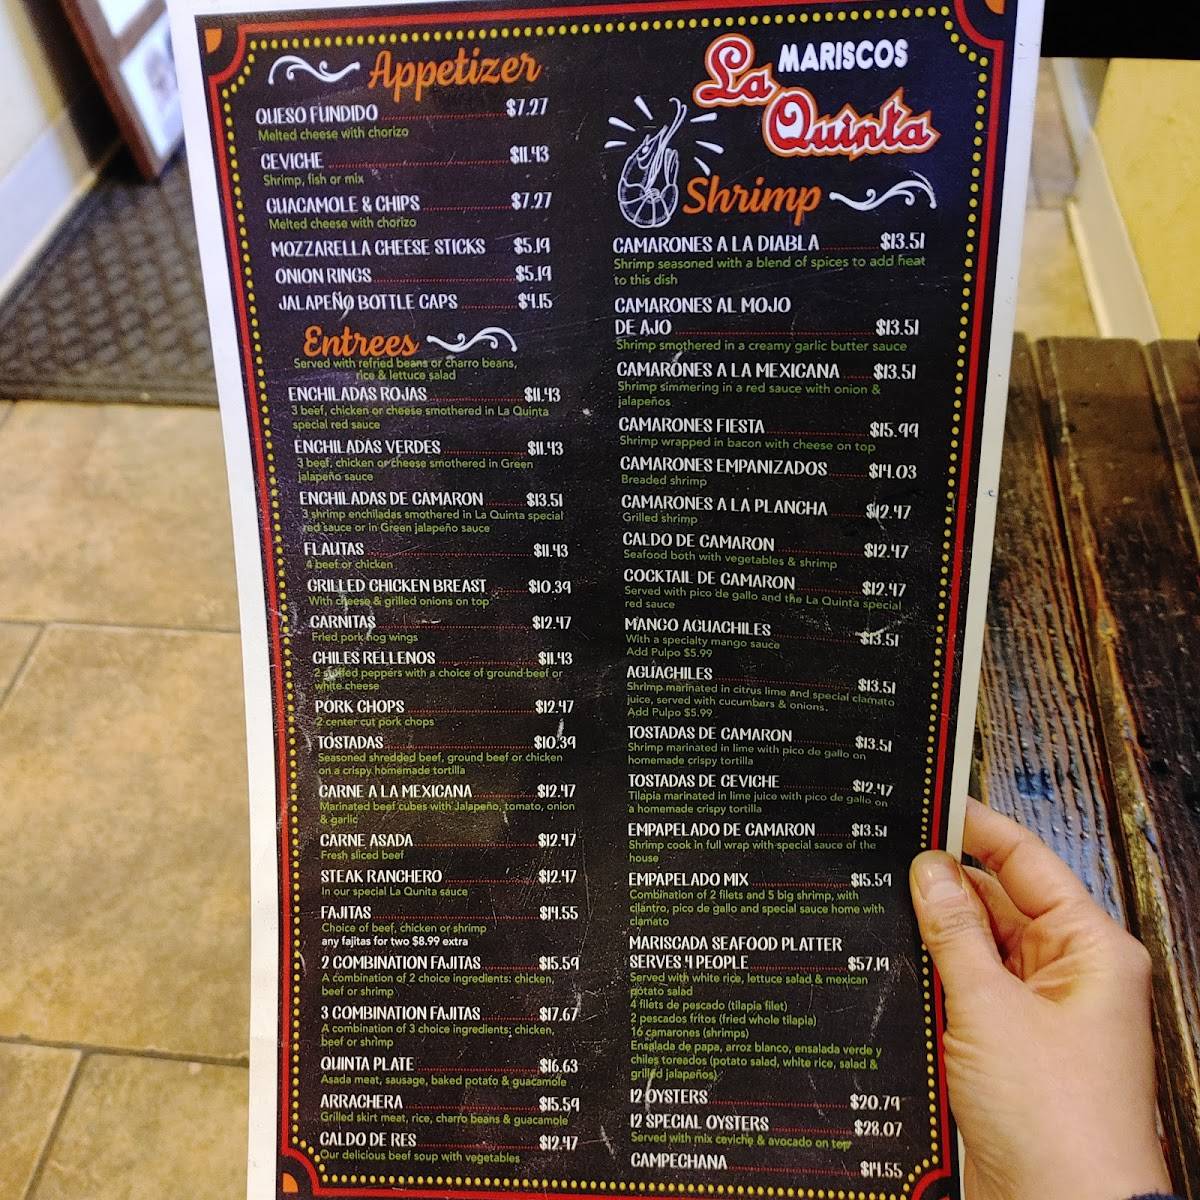 Appetizer
QUESO FUNDIDO $7.27
Melted cheese with chorizo
CEVICHE $11.43
Shrimp, fish or mix
GUACAMOLE & CHIPS $7.27
Melted cheese with chorizo
MOZZARELLA CHEESE STICKS $5.19
ONION RINGS $5.19
JALAPEÑO BOTTLE CAPS $4.15
Entrees
Served with refried beans or charro beans,
rice & lettuce salad
ENCHILADAS ROJAS $11.43
3 beef, chicken or cheese smothered in La Quinta
special red sauce
ENCHILADAS VERDES $11.43
3 beef, chicken or cheese smothered in Green
jalapeño sauce
ENCHILADAS DE CAMARON $13.51
3 shrimp enchiladas smothered in La Quinta special
red sauce or in Green jalapeño sauce
FLAUTAS $11.43
4 beef or chicken
GRILLED CHICKEN BREAST $10.39
With cheese & grilled onions on top
CARNITAS $12.47
Fried pork hog wings
CHILES RELLENOS $11.43
2 stuffed peppers with a choice of ground beef or
white cheese
PORK CHOPS $12.47
2 center cut pork chops
TOSTADAS $10.39
Seasoned shredded beef, ground beef or chicken
on a crispy homemade tortilla
CARNE A LA MEXICANA $12.47
Marinated beef cubes with Jalapeño, tomato, onion
& garlic
CARNE ASADA $12.47
Fresh sliced beef
STEAK RANCHERO $12.47
In our special La Qunita sauce
FAJITAS $14.55
Choice of beef, chicken or shrimp
any fajitas for two $8.99 extra
2 COMBINATION FAJITAS $15.59
A combination of 2 choice ingredients: chicken,
beef or shrimp
3 COMBINATION FAJITAS $17.67
A combination of 3 choice ingredients: chicken,
beef or shrimp
QUINTA PLATE $16.63
Asada meat, sausage, baked potato & guacamole
ARRACHERA $15.59
Grilled skirt meat, rice, charro beans & guacamole
CALDO DE RES $12.47
Our delicious beef soup with vegetables
MARISCOS
La Quinta
Shrimp
CAMARONES A LA DIABLA $13.51
Shrimp seasoned with a blend of spices to add heat
to this dish
CAMARONES AL MOJO
DE AJO $13.51
Shrimp smothered in a creamy garlic butter sauce
CAMARONES A LA MEXICANA $13.51
Shrimp simmering in a red sauce with onion &
jalapeños
CAMARONES FIESTA $15.99
Shrimp wrapped in bacon with cheese on top
CAMARONES EMPANIZADOS $14.03
Breaded shrimp
CAMARONES A LA PLANCHA $12.47
Grilled shrimp
CALDO DE CAMARON $12.47
Seafood both with vegetables & shrimp
COCKTAIL DE CAMARON $12.47
Served with pico de gallo and the La Quinta special
red sauce
MANGO AGUACHILES $13.51
With a specialty mango sauce
Add Pulpo $5.99
AGUACHILES $13.51
Shrimp marinated in citrus lime and special clamato
juice, served with cucumbers & onions.
Add Pulpo $5.99
TOSTADAS DE CAMARON $13.51
Shrimp marinated in lime with pico de gallo on
homemade crispy tortilla
TOSTADAS DE CEVICHE $12.47
Tilapia marinated in lime juice with pico de gallo on
a homemade crispy tortilla
EMPAPELADO DE CAMARON $13.51
Shrimp cook in full wrap with special sauce of the
house
EMPAPELADO MIX $15.59
Combination of 2 filets and 5 big shrimp, with
cilantro, pico de gallo and special sauce home with
clamato
MARISCADA SEAFOOD PLATTER
SERVES 4 PEOPLE $57.19
Served with white rice, lettuce salad & mexican
potato salad
4 filets de pescado (tilapia filet)
2 pescados fritos (fried whole tilapia)
16 camarones (shrimps)
Ensalada de papa, arroz blanco, ensalada verde y
chiles toreados (potato salad, white rice, salad &
grilled jalapeños)
12 OYSTERS $20.79
12 SPECIAL OYSTERS $28.07
Served with mix ceviche & avocado on top
CAMPECHANA $14.55